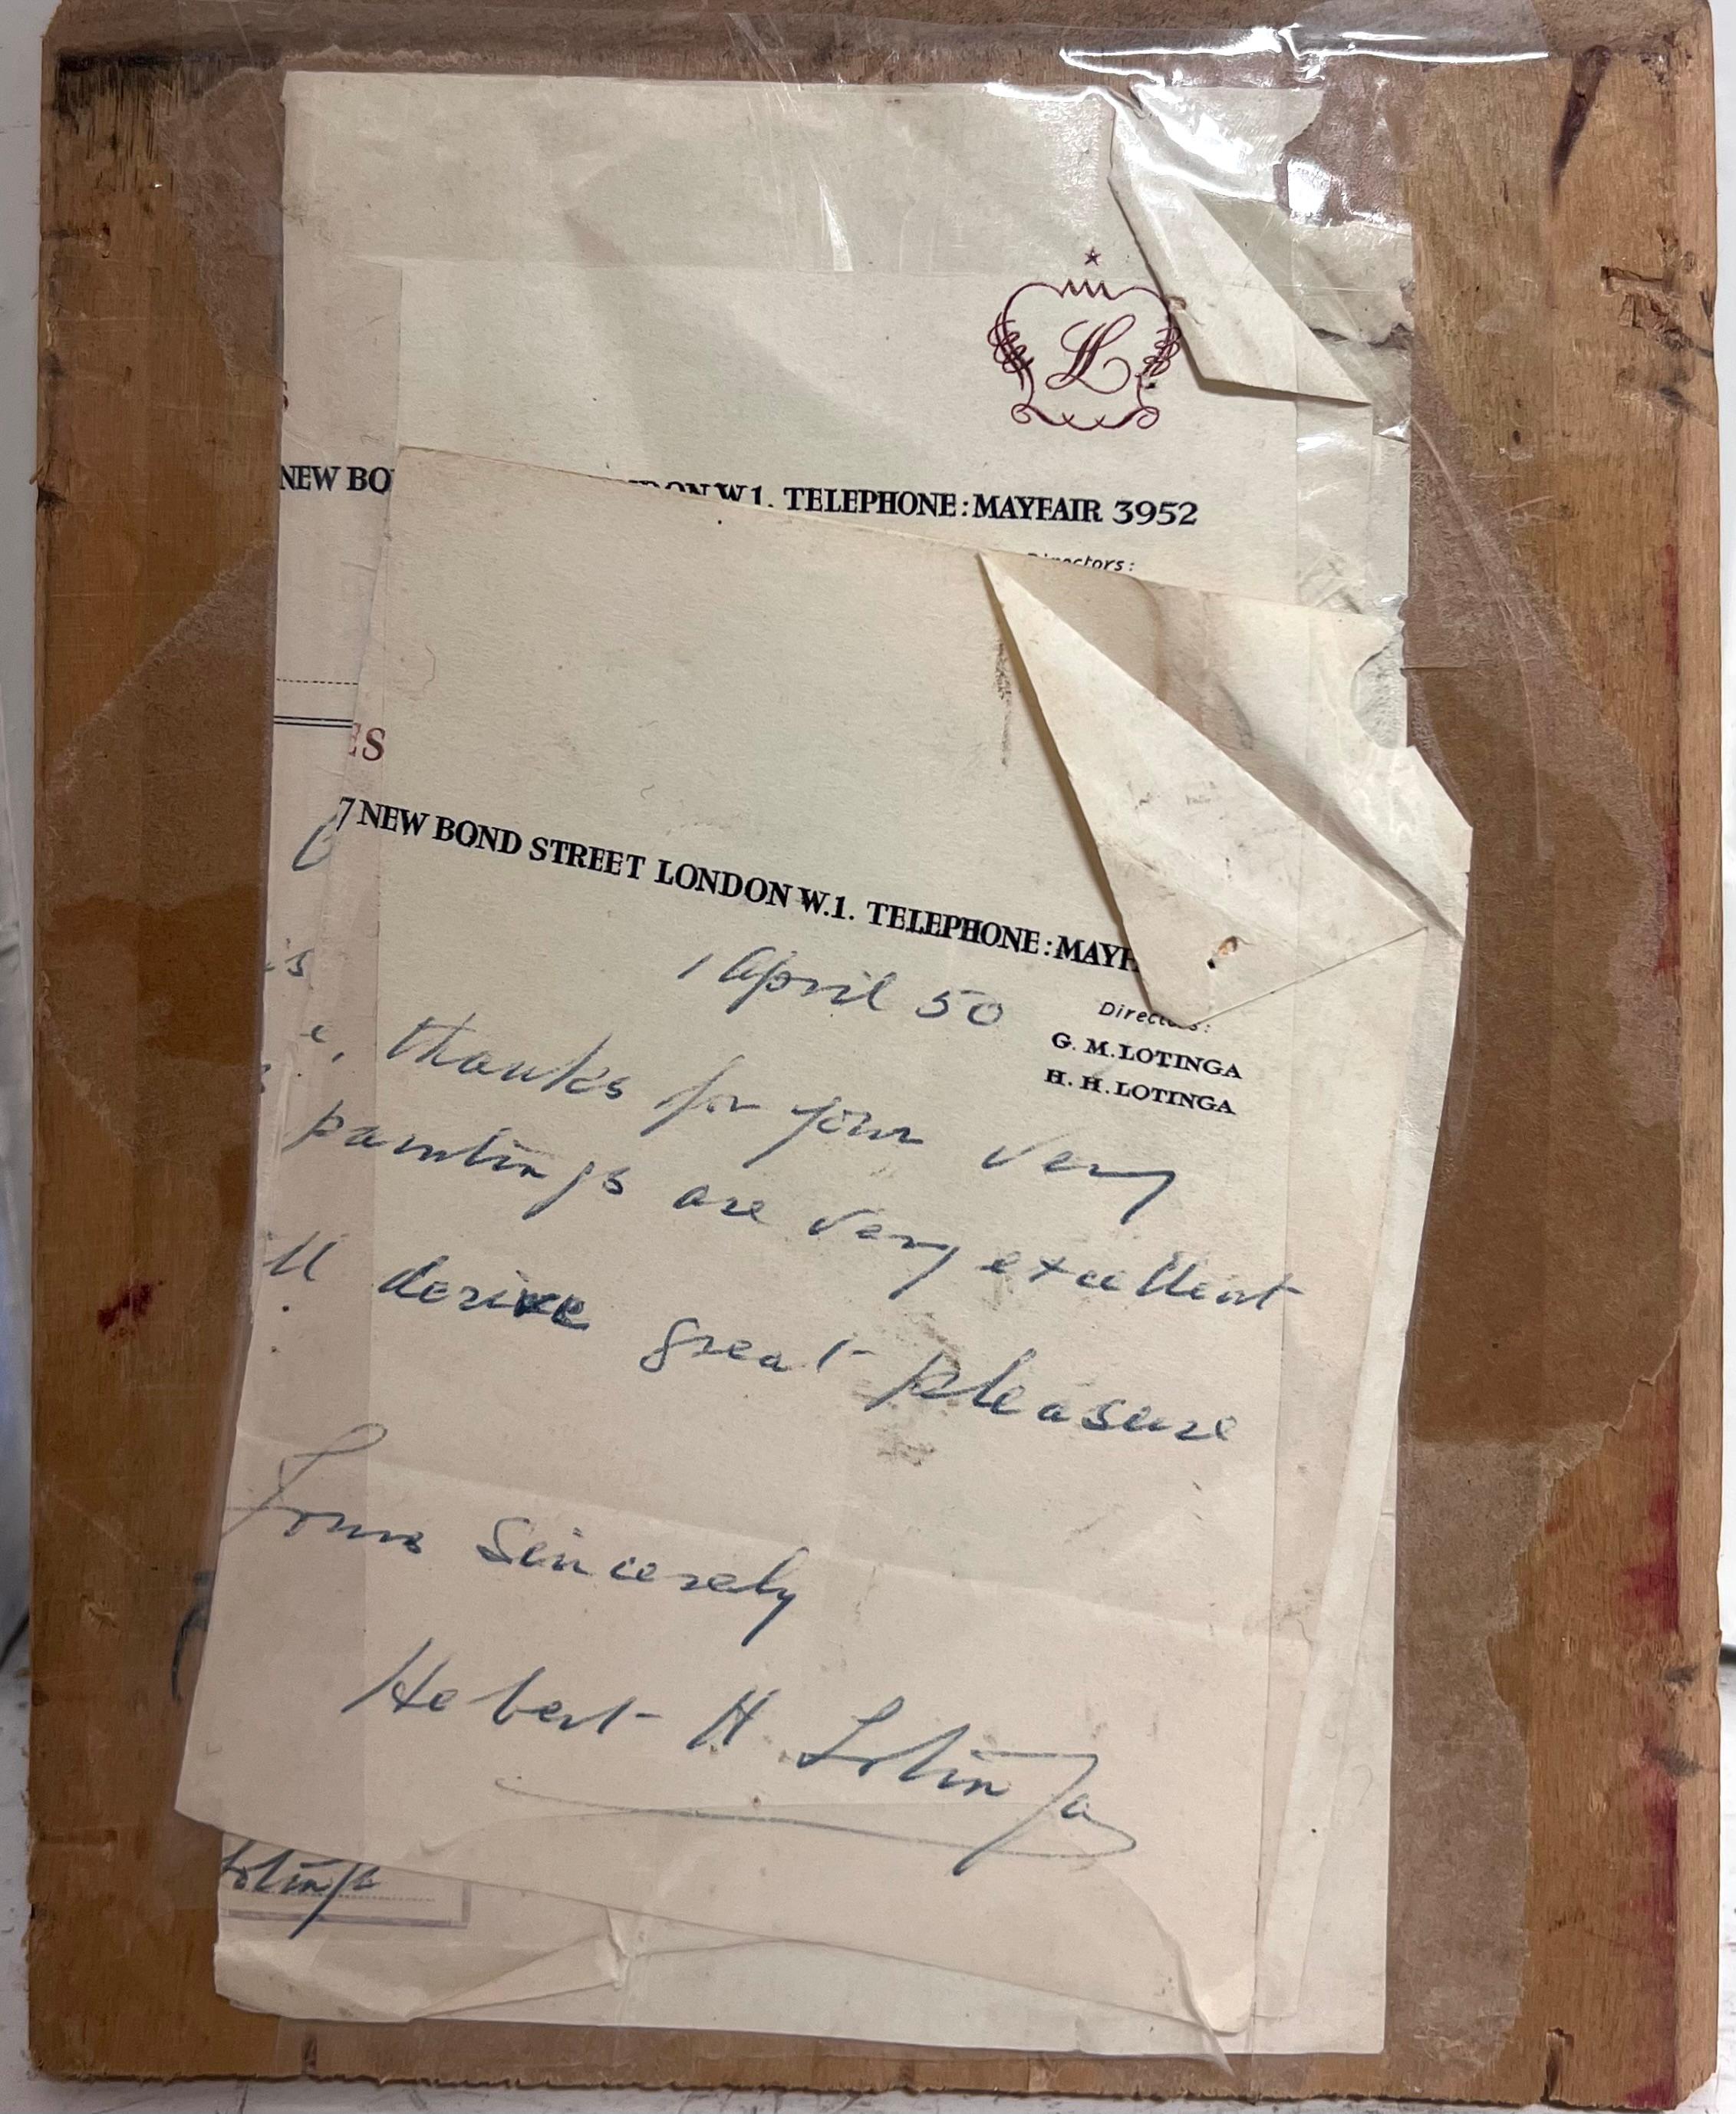 L
NEW BO
W.1. TELEPHONE: MAYFAIR 3952
Directors:
ES
7 NEW BOND STREET LONDON W.1. TELEPHONE: MAYF
1 April 50
Directors:
G. M. LOTINGA
H. H. LOTINGA
thanks for your very
paintings are very excellent
ll derive great pleasure
Yours Sincerely
Hebert H. Lotinga
Lotinga